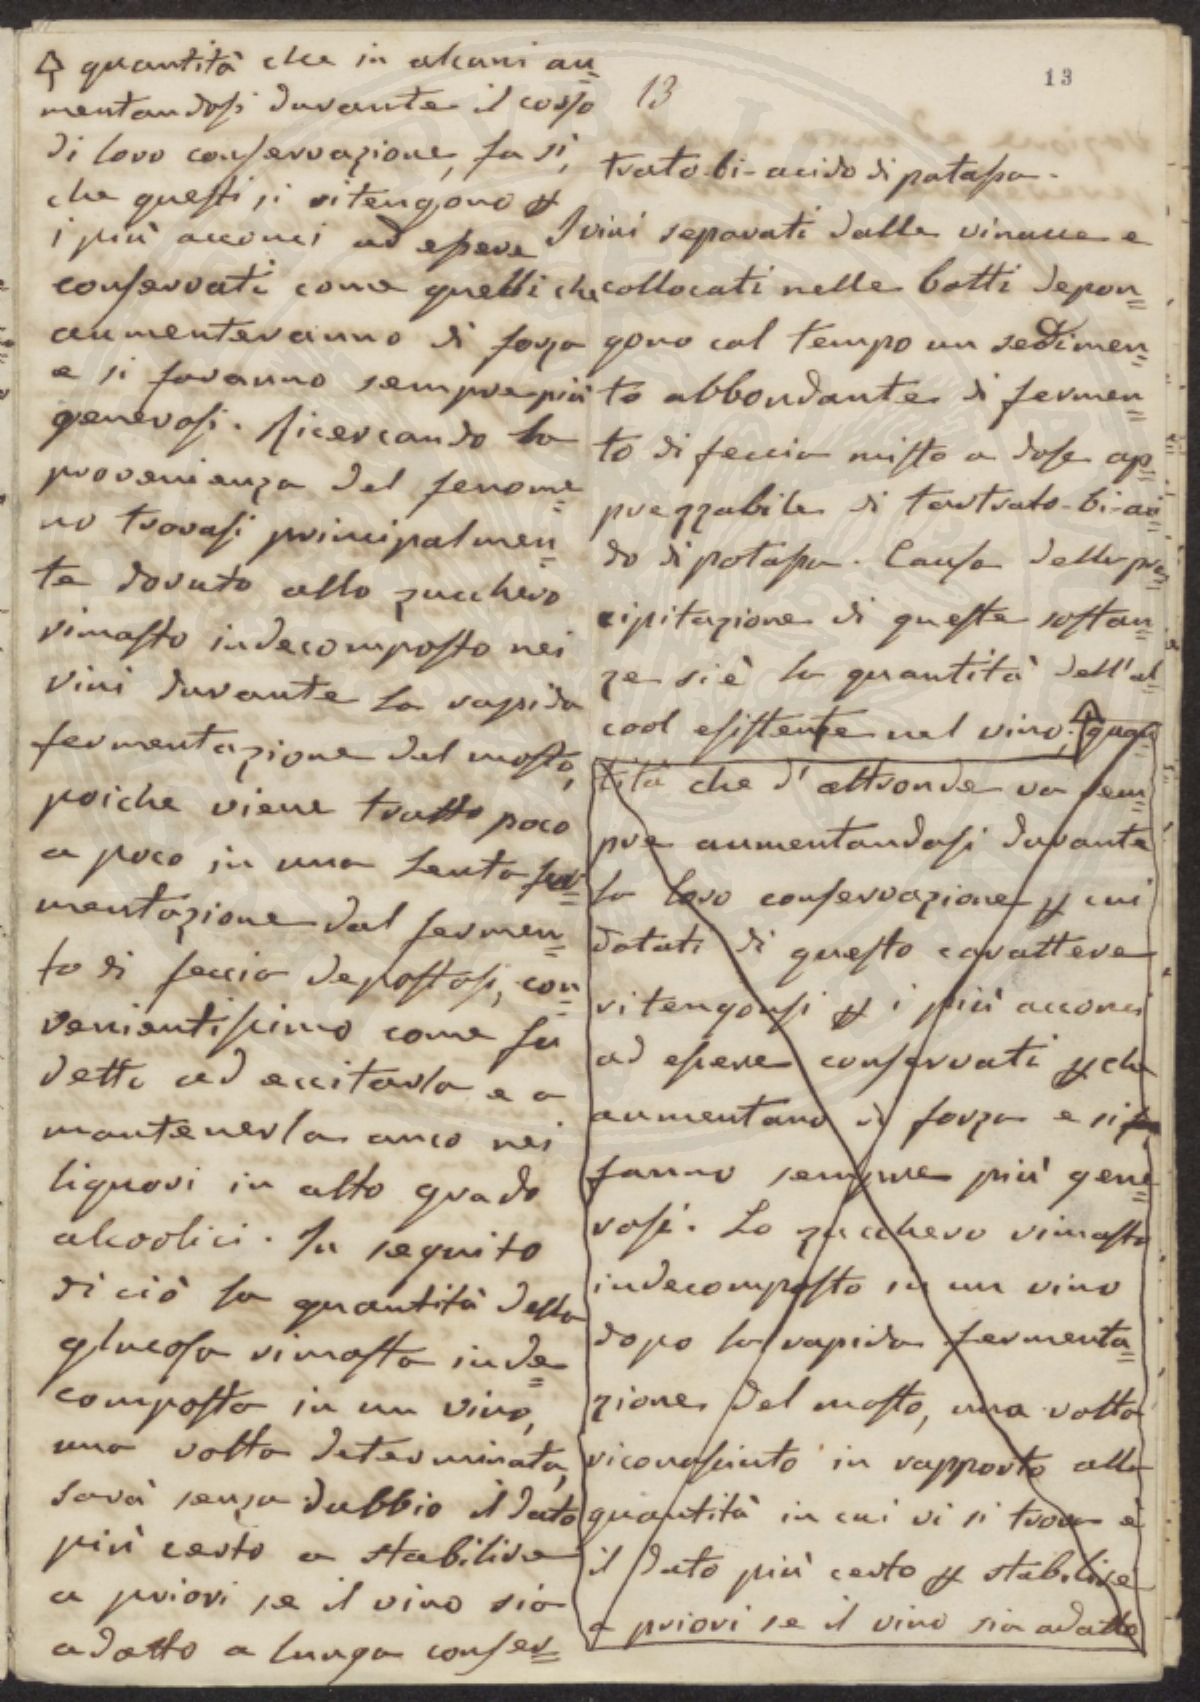 13
13
quantità che in alcuni au=
mentandosi durante il corso
di loro conservazione, fa sì,
che questi si ritengono
i più acconci ad essere
conservati come quelli che
aumenteranno di forza
e si faranno sempre più
generosi. Ricercando la
provenienza del fenome=
no trovasi principalmen=
te dovuto allo zucchero
rimasto indecomposto nei
vini durante la rapida
fermentazione del mosto,
poiche viene tratto poco
a poco in una lenta fer=
mentazione dal fermen=
to di feccia depostosi, con=
venientissimo come fu
detto ad eccitarla e a
mantenerla anco nei
liquori in alto grado
alcoolici. In seguito
di ciò la quantità della
glucosa rimasta inde=
composta in un vino,
una volta determinata,
sarà senza dubbio il dato
più certo a stabilire
a priori se il vino sia
adatto a lunga conser=
trato-bi-acido di potassa.
I vini separati dalle vinacce e
collocati nelle botti depon=
gono col tempo un sedimen=
to abbondante di fermen=
to di feccia misto a dose ap=
prezzabile di tartrato-bi-aci=
do di potassa. Causa della pre=
cipitazione di queste sostan=
ze si è la quantità dell'al=
cool esistente nel vino; quan=
tità che d'altronde va sem=
pre aumentandosi durante
la loro conservazione cui
dotati di questo carattere
ritengonsi i più acconci
ad essere conservati che
aumentano di forza e si
fanno sempre più gene=
rosi. Lo zucchero rimasto
indecomposto in un vino
dopo la rapida fermenta=
zione del mosto, una volta
riconosciuto in rapporto alla
quantità in cui vi si trova è
il dato più certo stabilire
a priori se il vino sia adatto